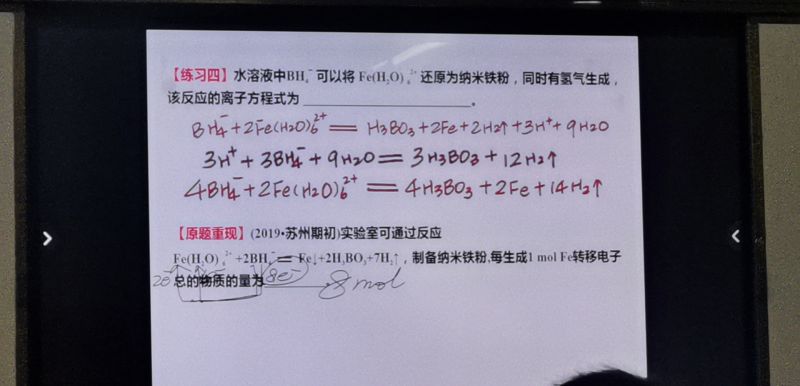 【练习四】水溶液中BH₄⁻可以将 Fe(H₂O)₆²⁺还原为纳米铁粉，同时有氢气生成，
该反应的离子方程式为__________。
BH₄⁻+2Fe(H₂O)₆²⁺ == H₃BO₃+2Fe+2H₂↑+3H⁺+9H₂O
3H⁺+3BH₄⁻+9H₂O==3H₃BO₃+12H₂↑
4BH₄⁻+2Fe(H₂O)₆²⁺ == 4H₃BO₃+2Fe+14H₂↑
【原题重现】(2019•苏州期初)实验室可通过反应
Fe(H₂O)₆²⁺+2BH₄⁻ == Fe↓+2H₃BO₃+7H₂↑，制备纳米铁粉,每生成1 mol Fe转移电子
2e⁻ 总的物质的量为 8e⁻ 8mol